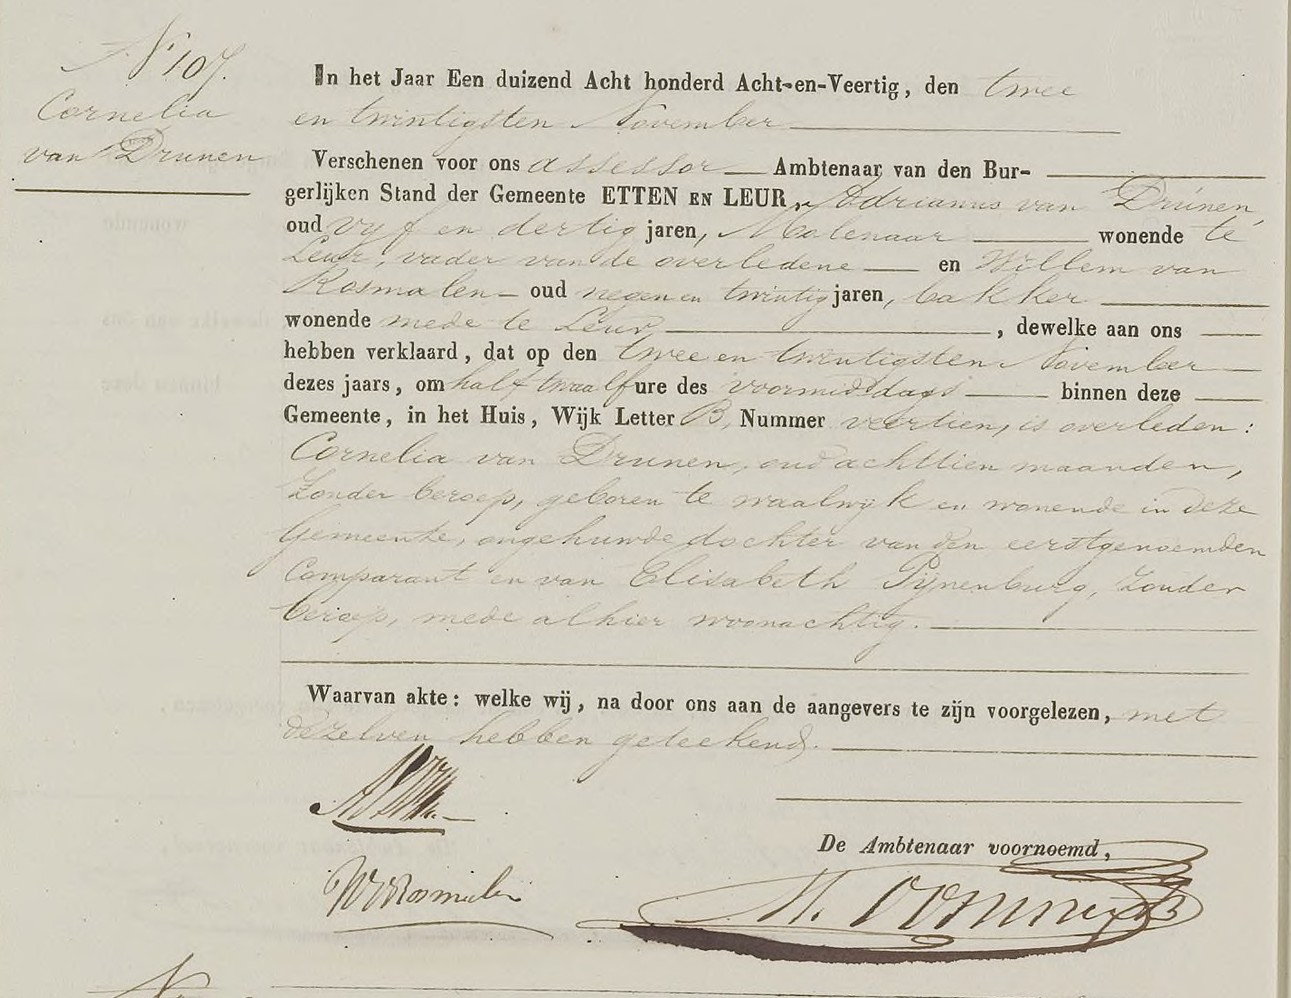 N° 107.
Cornelia
van Drunen
In het Jaar Een duizend Acht honderd Acht-en-Veertig, den twee
en twintigsten November
Verschenen voor ons assessor Ambtenaar van den Bur-
gerlijken Stand der Gemeente ETTEN EN LEUR, Adrianus van Drunen,
oud vyf en dertig jaren, Molenaar wonende te
Leur, vader van de overledene en Willem van
Rosmalen oud negen en twintig jaren, bakker
wonende mede te Leur , dewelke aan ons
hebben verklaard, dat op den twee en twintigsten November
dezes jaars, om half twaalf ure des voormiddags binnen deze
Gemeente, in het Huis, Wijk Letter B, Nummer veertien, is overleden:
Cornelia van Drunen, oud achttien maanden,
zonder beroep, geboren te waalwyk en wonende in deze
Gemeente, ongehuwde dochter van den eerstgenoemden
Comparant en van Elisabeth Pijnenburg, zonder
beroep, mede alhier woonachtig.
Waarvan akte: welke wij, na door ons aan de aangevers te zijn voorgelezen, met
dezelven hebben geteekend.
De Ambtenaar voornoemd,
WvRosmalen